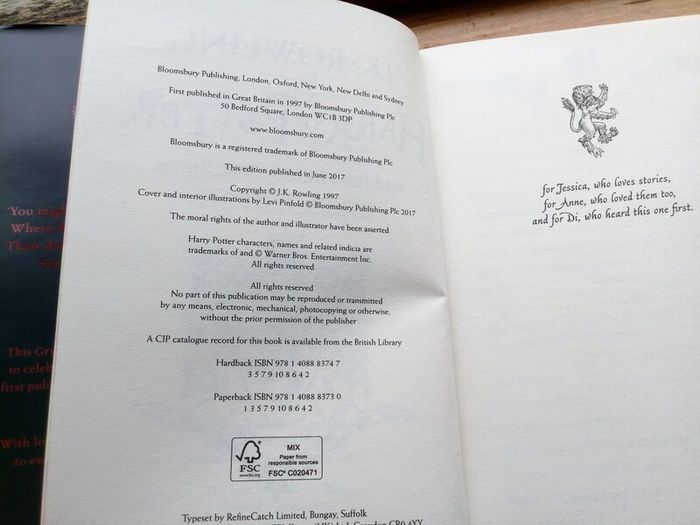 Bloomsbury Publishing, London, Oxford, New York, New Delhi and Sydney
First published in Great Britain in 1997 by Bloomsbury Publishing Plc
50 Bedford Square, London WC1B 3DP
www.bloomsbury.com
Bloomsbury is a registered trademark of Bloomsbury Publishing Plc
This edition published in June 2017
Copyright © J.K. Rowling 1997
Cover and interior illustrations by Levi Pinfold © Bloomsbury Publishing Plc 2017
The moral rights of the author and illustrator have been asserted
Harry Potter characters, names and related indicia are
trademarks of and © Warner Bros. Entertainment Inc.
All rights reserved
All rights reserved
No part of this publication may be reproduced or transmitted
by any means, electronic, mechanical, photocopying or otherwise,
without the prior permission of the publisher
A CIP catalogue record for this book is available from the British Library
Hardback ISBN 978 1 4088 8374 7
3 5 7 9 10 8 6 4 2
Paperback ISBN 978 1 4088 8373 0
1 3 5 7 9 10 8 6 4 2
FSC
www.fsc.org
MIX
Paper from
responsible sources
FSC® C020471
Typeset by RefineCatch Limited, Bungay, Suffolk
for Jessica, who loves stories,
for Anne, who loved them too,
and for Di, who heard this one first.
'You
Where
This
to
first
With
to